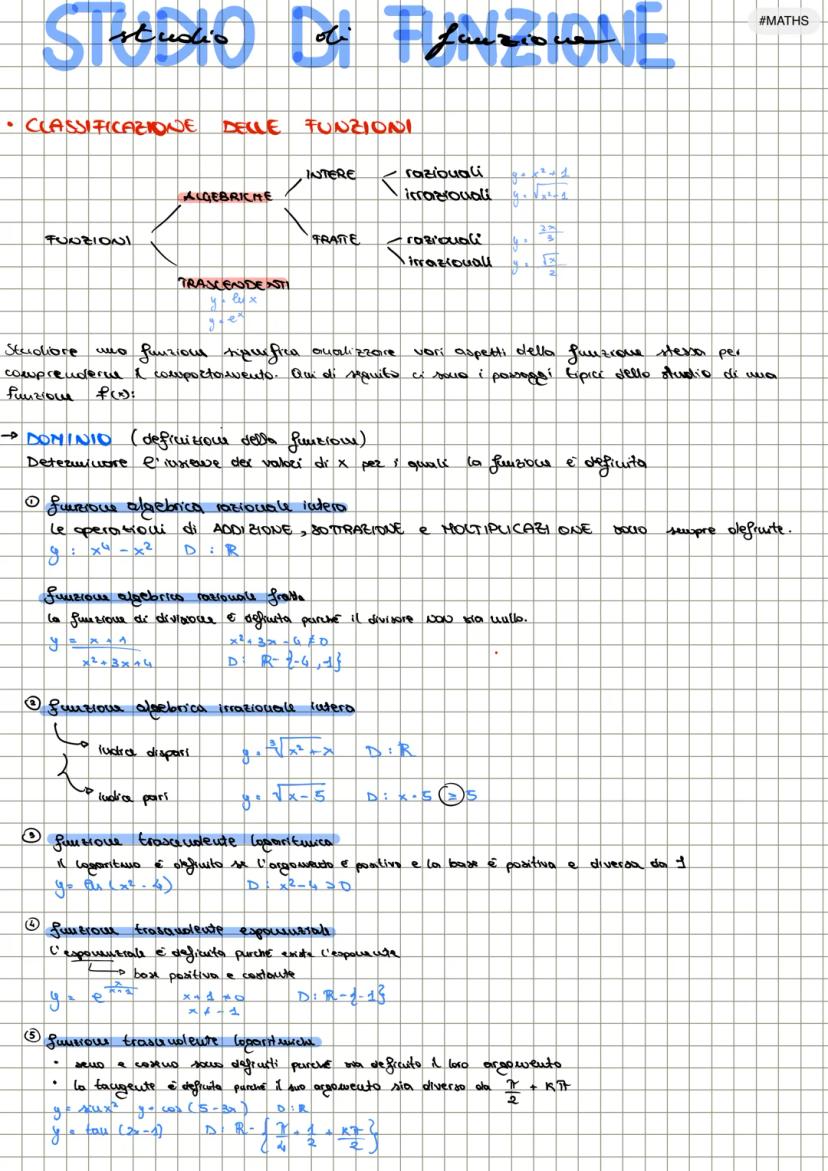 #MATHS
STUDIO DI FUNZIONE
studio di funzione
• CLASSIFICAZIONE DELLE FUNZIONI
FUNZIONI
ALGEBRICHE
INTERE
razionali y = x² + 1
irrazionali y = √x²-1
FRATTE
razionali y = 2x/3
irrazionali y = √x/2
TRASCENDENTI
y = ln x
y = eˣ
Studiare una funzione significa analizzare vari aspetti della funzione stessa per
comprenderne il comportamento. Qui di seguito ci sono i passaggi tipici dello studio di una
funzione f(x):
→ DOMINIO (definizione della funzione)
Determinare l'insieme dei valori di x per i quali la funzione è definita
① funzione algebrica razionale intera
Le operazioni di ADDIZIONE, SOTTRAZIONE e MOLTIPLICAZIONE sono sempre definite.
y = x⁴ - x² D : R
funzione algebrica razionale fratta
la funzione di divisione è definita purché il divisore NON sia nullo.
y = x + 1 / x² + 3x + 4 x² + 3x - 4 ≠ 0
D: R - {-4, 1}
② funzione algebrica irrazionale intera
indice dispari y = ³√x² + x D : R
indice pari y = √x - 5 D : x - 5 ≥ 5
③ funzione trascendente logaritmica
Il logaritmo è definito se l'argomento è positivo e la base è positiva e diversa da 1
y = ln (x² - 4) D : x² - 4 > 0
④ funzione trascendente esponenziale
L'esponenziale è definita purché esista l'esponente
base positiva e costante
y = e^x/x+1 x + 1 ≠ 0 D : R - {-1}
x ≠ -1
⑤ funzione trascendente logaritmiche
• seno e coseno sono definiti purché sia definito il loro argomento
• la tangente è definita purché il suo argomento sia diverso da π/2 + Kπ
y = sin x² y = cos (5 - 3x) D : R
y = tan (2x - 1) D : R - {π/4 + 1/2 + Kπ/2}